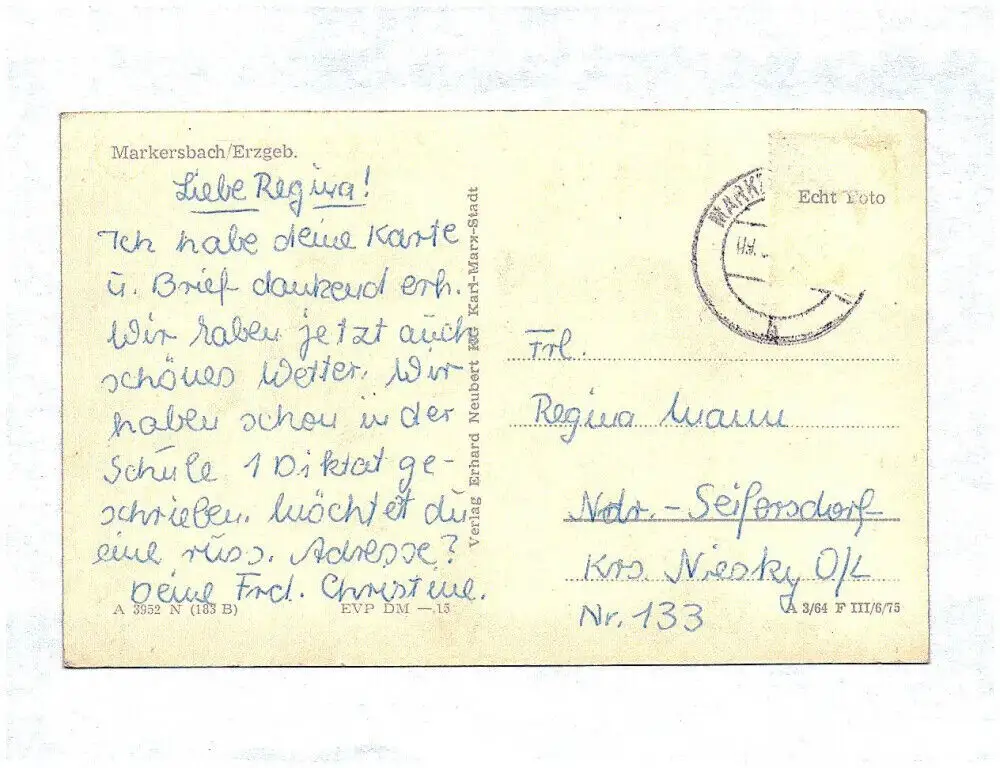 Markersbach/Erzgeb.
Liebe Regina!
Ich habe deine Karte
u. Brief dankend erh.
Wir haben jetzt auch
schönes Wetter. Wir
haben schon in der
Schule 1 Diktat ge-
schrieben. Möchtest du
eine russ. Adresse?
Deine Frd. Christine.
A 3952 N (183 B)
EVP DM —.15
Verlag Erhard Neubert KG Karl-Marx-Stadt
Echt Foto
Frl.
Regina Mann
Ndr.-Seifersdorf
Krs. Niesky O/L
Nr. 133
A 3/64 F III/6/75